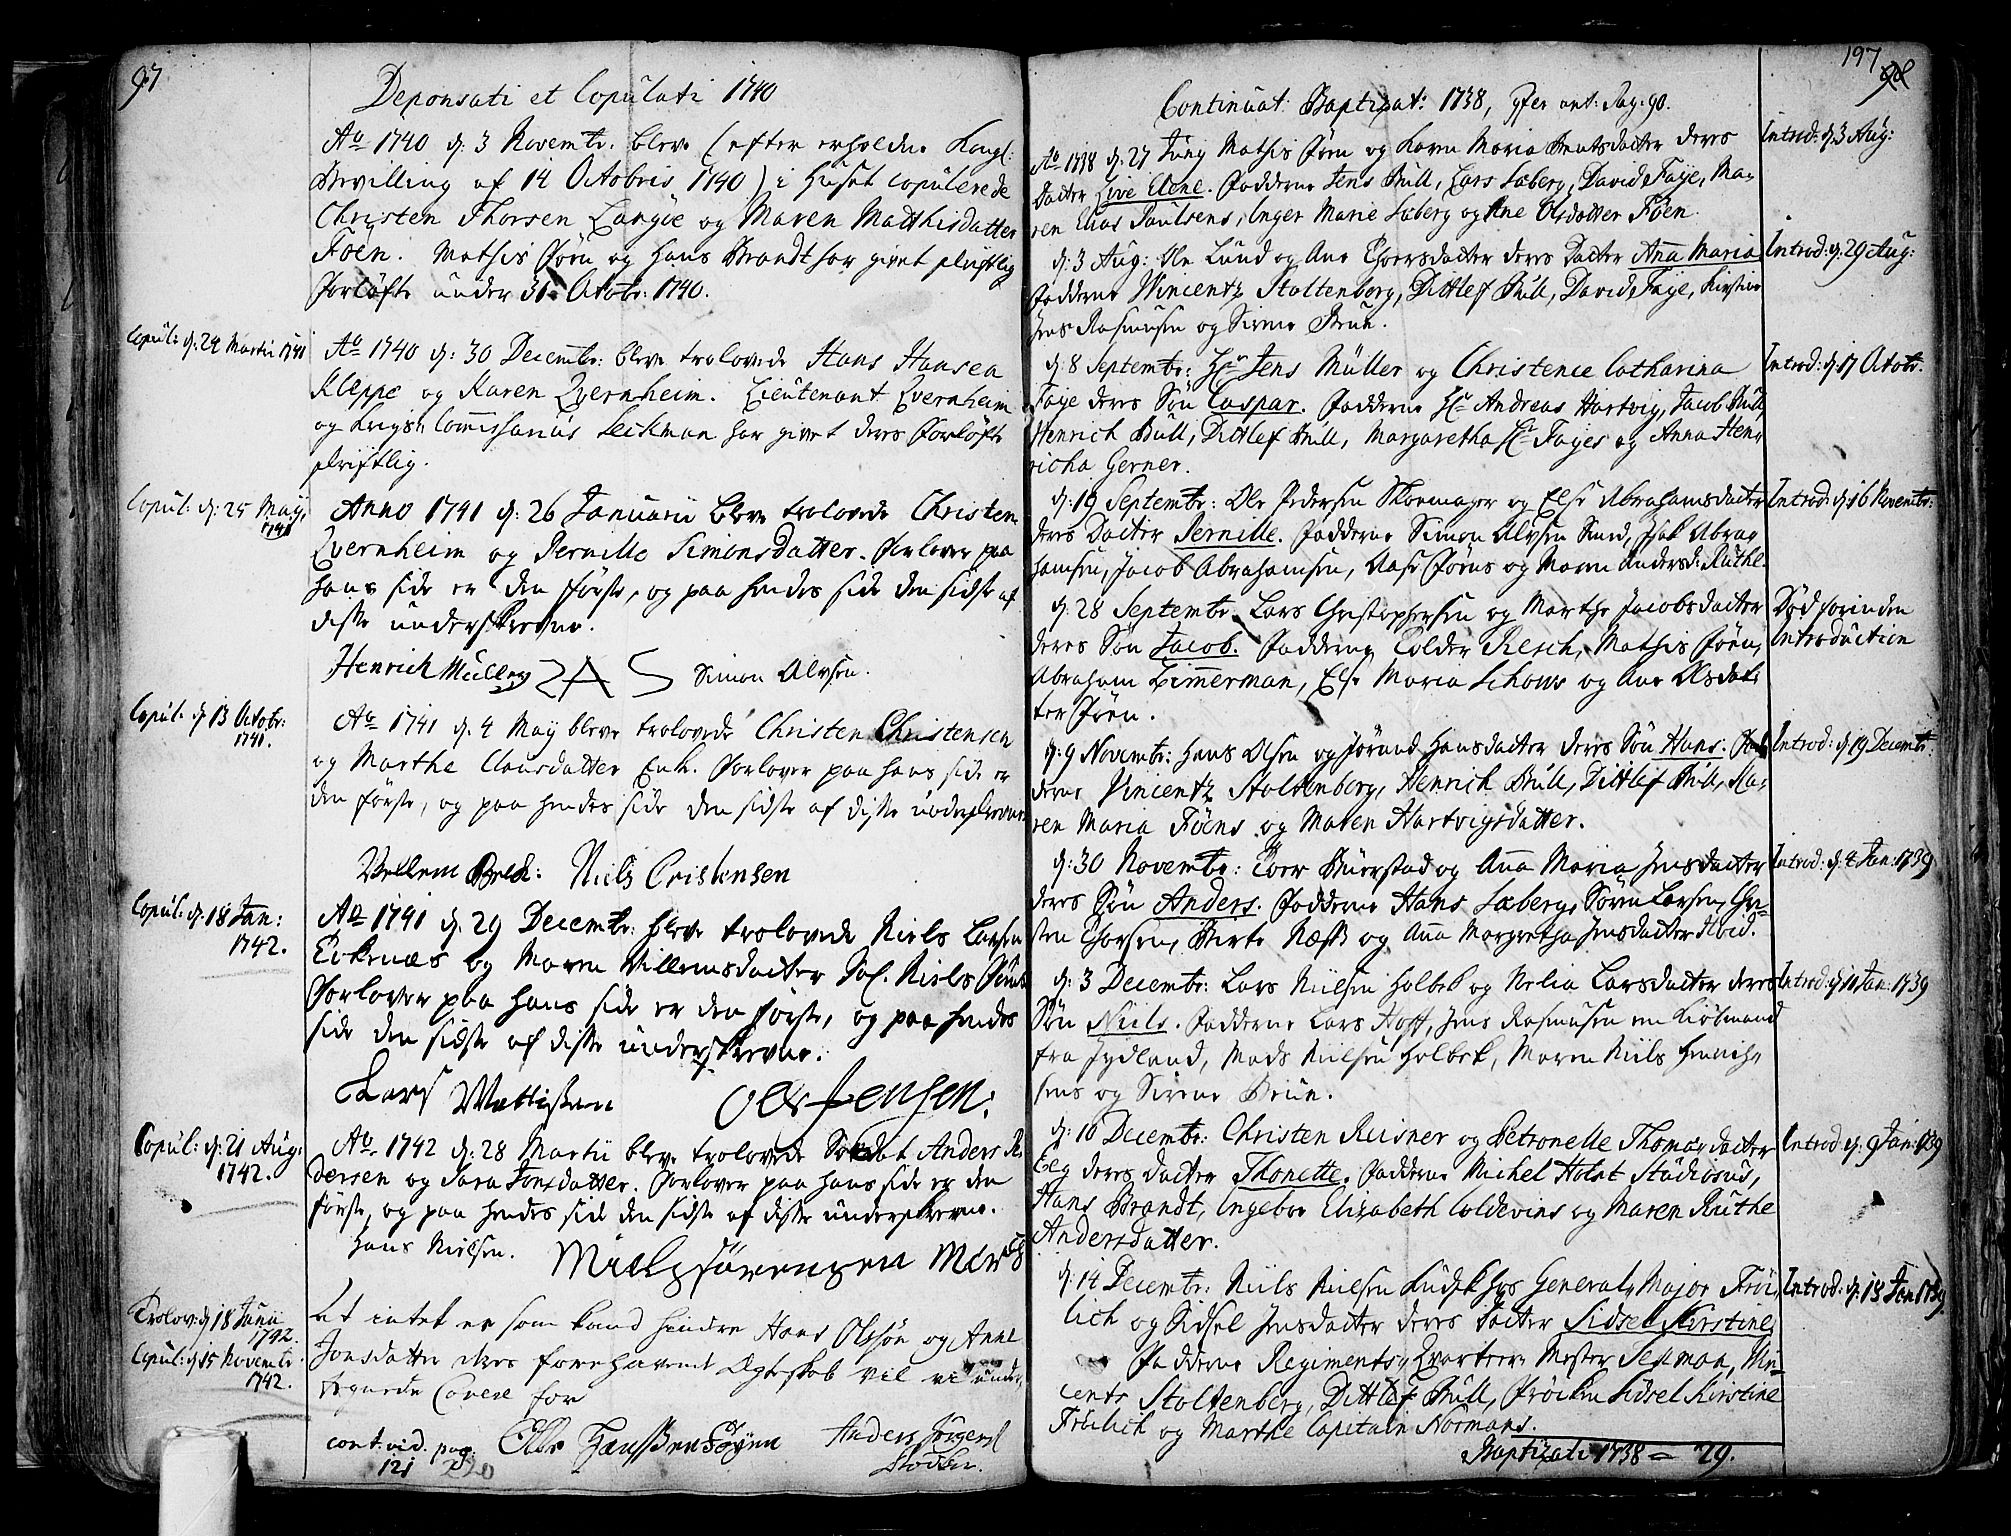 97
Deponsati et Copulati 1740
Ao 1740 d: 3 Novembr. bleve (efter erholdne Kongl:
Bevilling af 14 Octobris 1740) i Huset copulerede
Christen Thorsen Langöe og Maren Matthisdatter
Föen. Mathis Föen og Hans Brandt har givet skriftlig
Forløfte under 31 Octobr: 1740.
Copul: d: 24 Martii 1741
Ao 1740 d: 30 Decembr: bleve trolovede Hans Hansen
Kleppe og Karen Qvernheim. Lieutenant Qvernheim
og Krigs Commissarius Seckman har givet deres Forløfte
skriftlig.
Copul: d: 25 Maij
1741
Anno 1741 d: 26 Januarii bleve trolovede Christen
Qvernheim og Pernille Simonsdatter. Forlover paa
hans side er den første, og paa hendes side den sidste af
disse underskrevne.
Henrich Müller S Simon Alvsen.
Copul: d: 13 Octobr:
1741.
Ao 1741 d. 4 Maij bleve trolovede Christen Christensen
og Marthe Clausdatter Enk. Forlover paa hans side er
den første, og paa hendes side den sidste af disse underskrevne
Vellem Beck: Niels Cristensen
Copul: d: 18 Jan:
1742.
Ao 1741 d. 29 Decembr: bleve trolovede Niels Larsen
Eckenæs og Maren Villemsdatter Sal. Niels
Forlover paa hans side er den første, og paa hendes
side den sidste af disse underskrevne.
Lars Mattissen Ole Jensen:
Copul: d: 21 Aug:
1742.
Ao 1742 d: 28 Martii bleve trolovede Soldat Anders
dersen og Sara Jonsdatter. Forlover paa hans side er den
første, og paa hendes side den sidste af disse underskrevne.
Hans Nielsen. Niels Sörensen
Trolov: d 18 Junii
1742.
Copul: d 15 Novembr.
1742.
At intet er som kand hindre Hans Olssøn og Anne
Jonsdatter deres forehavende Ægteskab vil vi under
tegnede Cavere for
cont: vid: pag:
121 220
Anders Jørgens
197
98
Continuat: Baptizat: 1738, efter ant: Pag: 90.
Ao 1738 d: 27 Junij Mathis Föen og Karen Maria Bentsdatter deres
Datter Live Elene. Fadderne Jens Bull, Lars Seeberg, David Faye, Ma-
ren Elias Paulsens, Inger Marie Seeberg og Ane Olsdatter Föen.
Introd: d: 3 Aug:
d: 3 Aug: Ole Lund og Ane Thorsdatter deres Datter Ana Maria
Fadderne Vincentz Stoltenberg, Dittlef Bull, David Faye, Kirstine
Jens Rasmusen og Sirene Brun.
Introd: d: 29 Aug:
d: 8 Septembr: Hr Jens Müller og Christence Catharina
Faye deres Søn Caspar. Fadderne Hr Andreas Hartvig, Jacob Bull
Henrich Bull, Dittlef Bull, Margaretha Hr Fayes og Anna Hen-
richa Gerner.
Introd: d: 17 Octobr.
d: 19 Septembr: Ole Pedersen Skoemager og Else Abrahamsdatter
deres Datter Pernille. Fadderne Simon Alvsen Smed, Isak Abra-
hamsen, Jacob Abrahamsen, Aase Föens og Maren Andersd: Ruthe.
Introd: d: 16 Novembr:
d. 28 Septembr. Lars Christophersen og Marthe Jacobsdatter
deres Søn Jacob. Fadderne Tolder Resch, Mathis Föen,
Abraham Zimmerman, Else Maria Schous og Ane Olsdat-
ter Föen.
Død forinden
Introduction
d. 9 Novembr: Hans Olsen og Jörand Hansdatter deres Søn Hans: Fad-
derne Vincentz Stoltenberg, Henrich Bull, Dittlef Bull, Ka-
ren Maria Föens og Maren Hartvigsdatter.
Introd: d: 19 Decembr:
d: 30 Novembr: Toer Buerstad og Ana Maria Jensdatter
deres Søn Anders. Fadderne Hans Seeberg, Sören Larsen, Chri-
sten Thorsen, Birte Næss og Ana Margretha Jensdatter Hvid.
Introd: d: 4 Jan: 1739
d: 3 Decembr: Lars Nielsen Holbek og Nelia Larsdatter deres
Søn Niels. Fadderne Lars Hoff, Jens Rasmusen en Kiøbmand
fra Jydland, Mads Nielsen Holbek, Maren Niels Henrich-
sens og Sirene Brun.
Introd: d: 11 Jan: 1739
d: 10 Decembr: Christen Reisner og Petronelle Thomasdatter
Eeg deres datter Thonette. Fadderne Michel Holst Studiosus,
Hans Brandt, Ingebor Elizabeth Coldevins og Maren Ruthe
Andersdatter.
Introd: d: 9 Jan: 1739
d: 14 Decembr: Niels Nielsen Kudsk hos General Major Frö-
lich og Sidsel Jensdatter deres Datter Sidsel Kirstine
Fadderne Regiments Qvarteer Mester Seckman, Vin-
cents Stoltenberg, Dittlef Bull, Frøiken Sidsel Kirstine
Frölich og Marthe Capitain Normans.
Introd: d: 13 Jan 1739
Baptizati 1738 = 29.